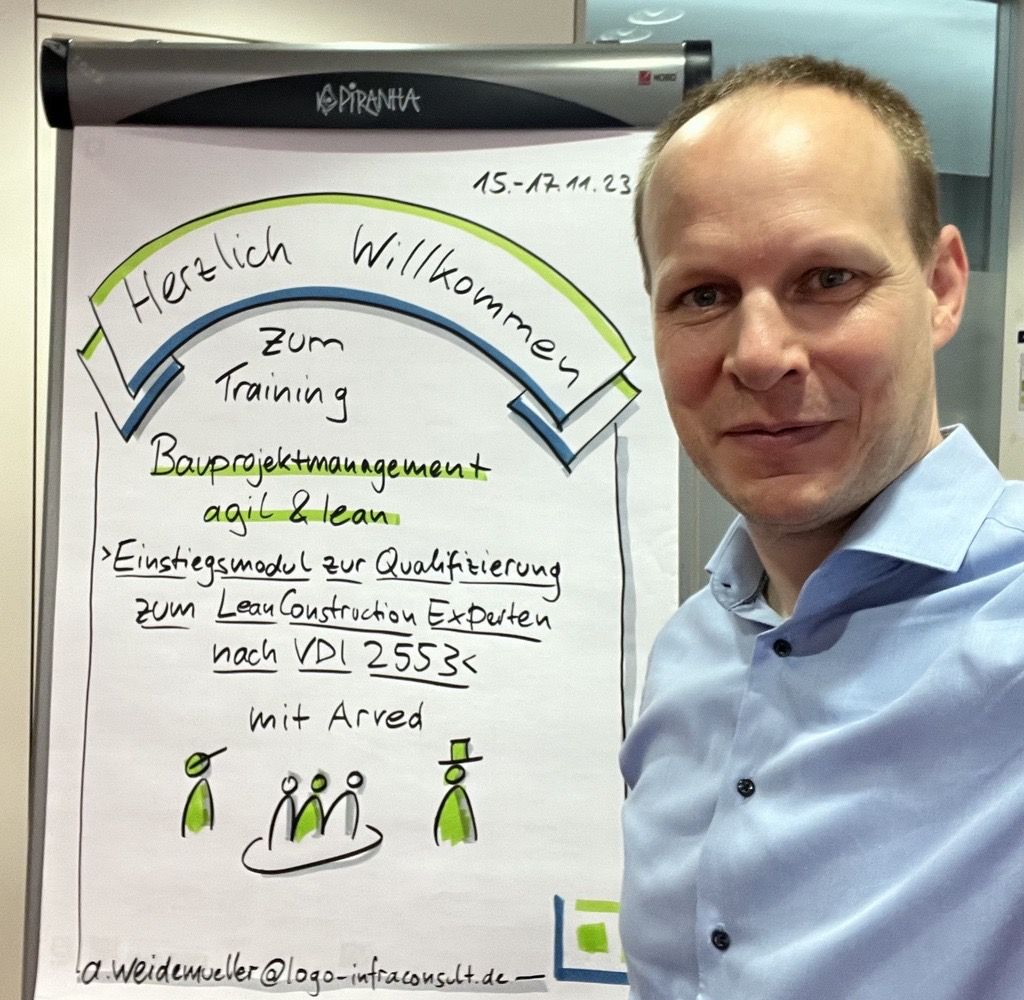 PIRANHA
NOBO
15.-17.11.23
Herzlich Willkommen
zum
Training
Bauprojektmanagement
agil & lean
>Einstiegsmodul zur Qualifizierung
zum LeanConstruction Experten
nach VDI 2553<
mit Arved
a.weidemueller@logo-infraconsult.de